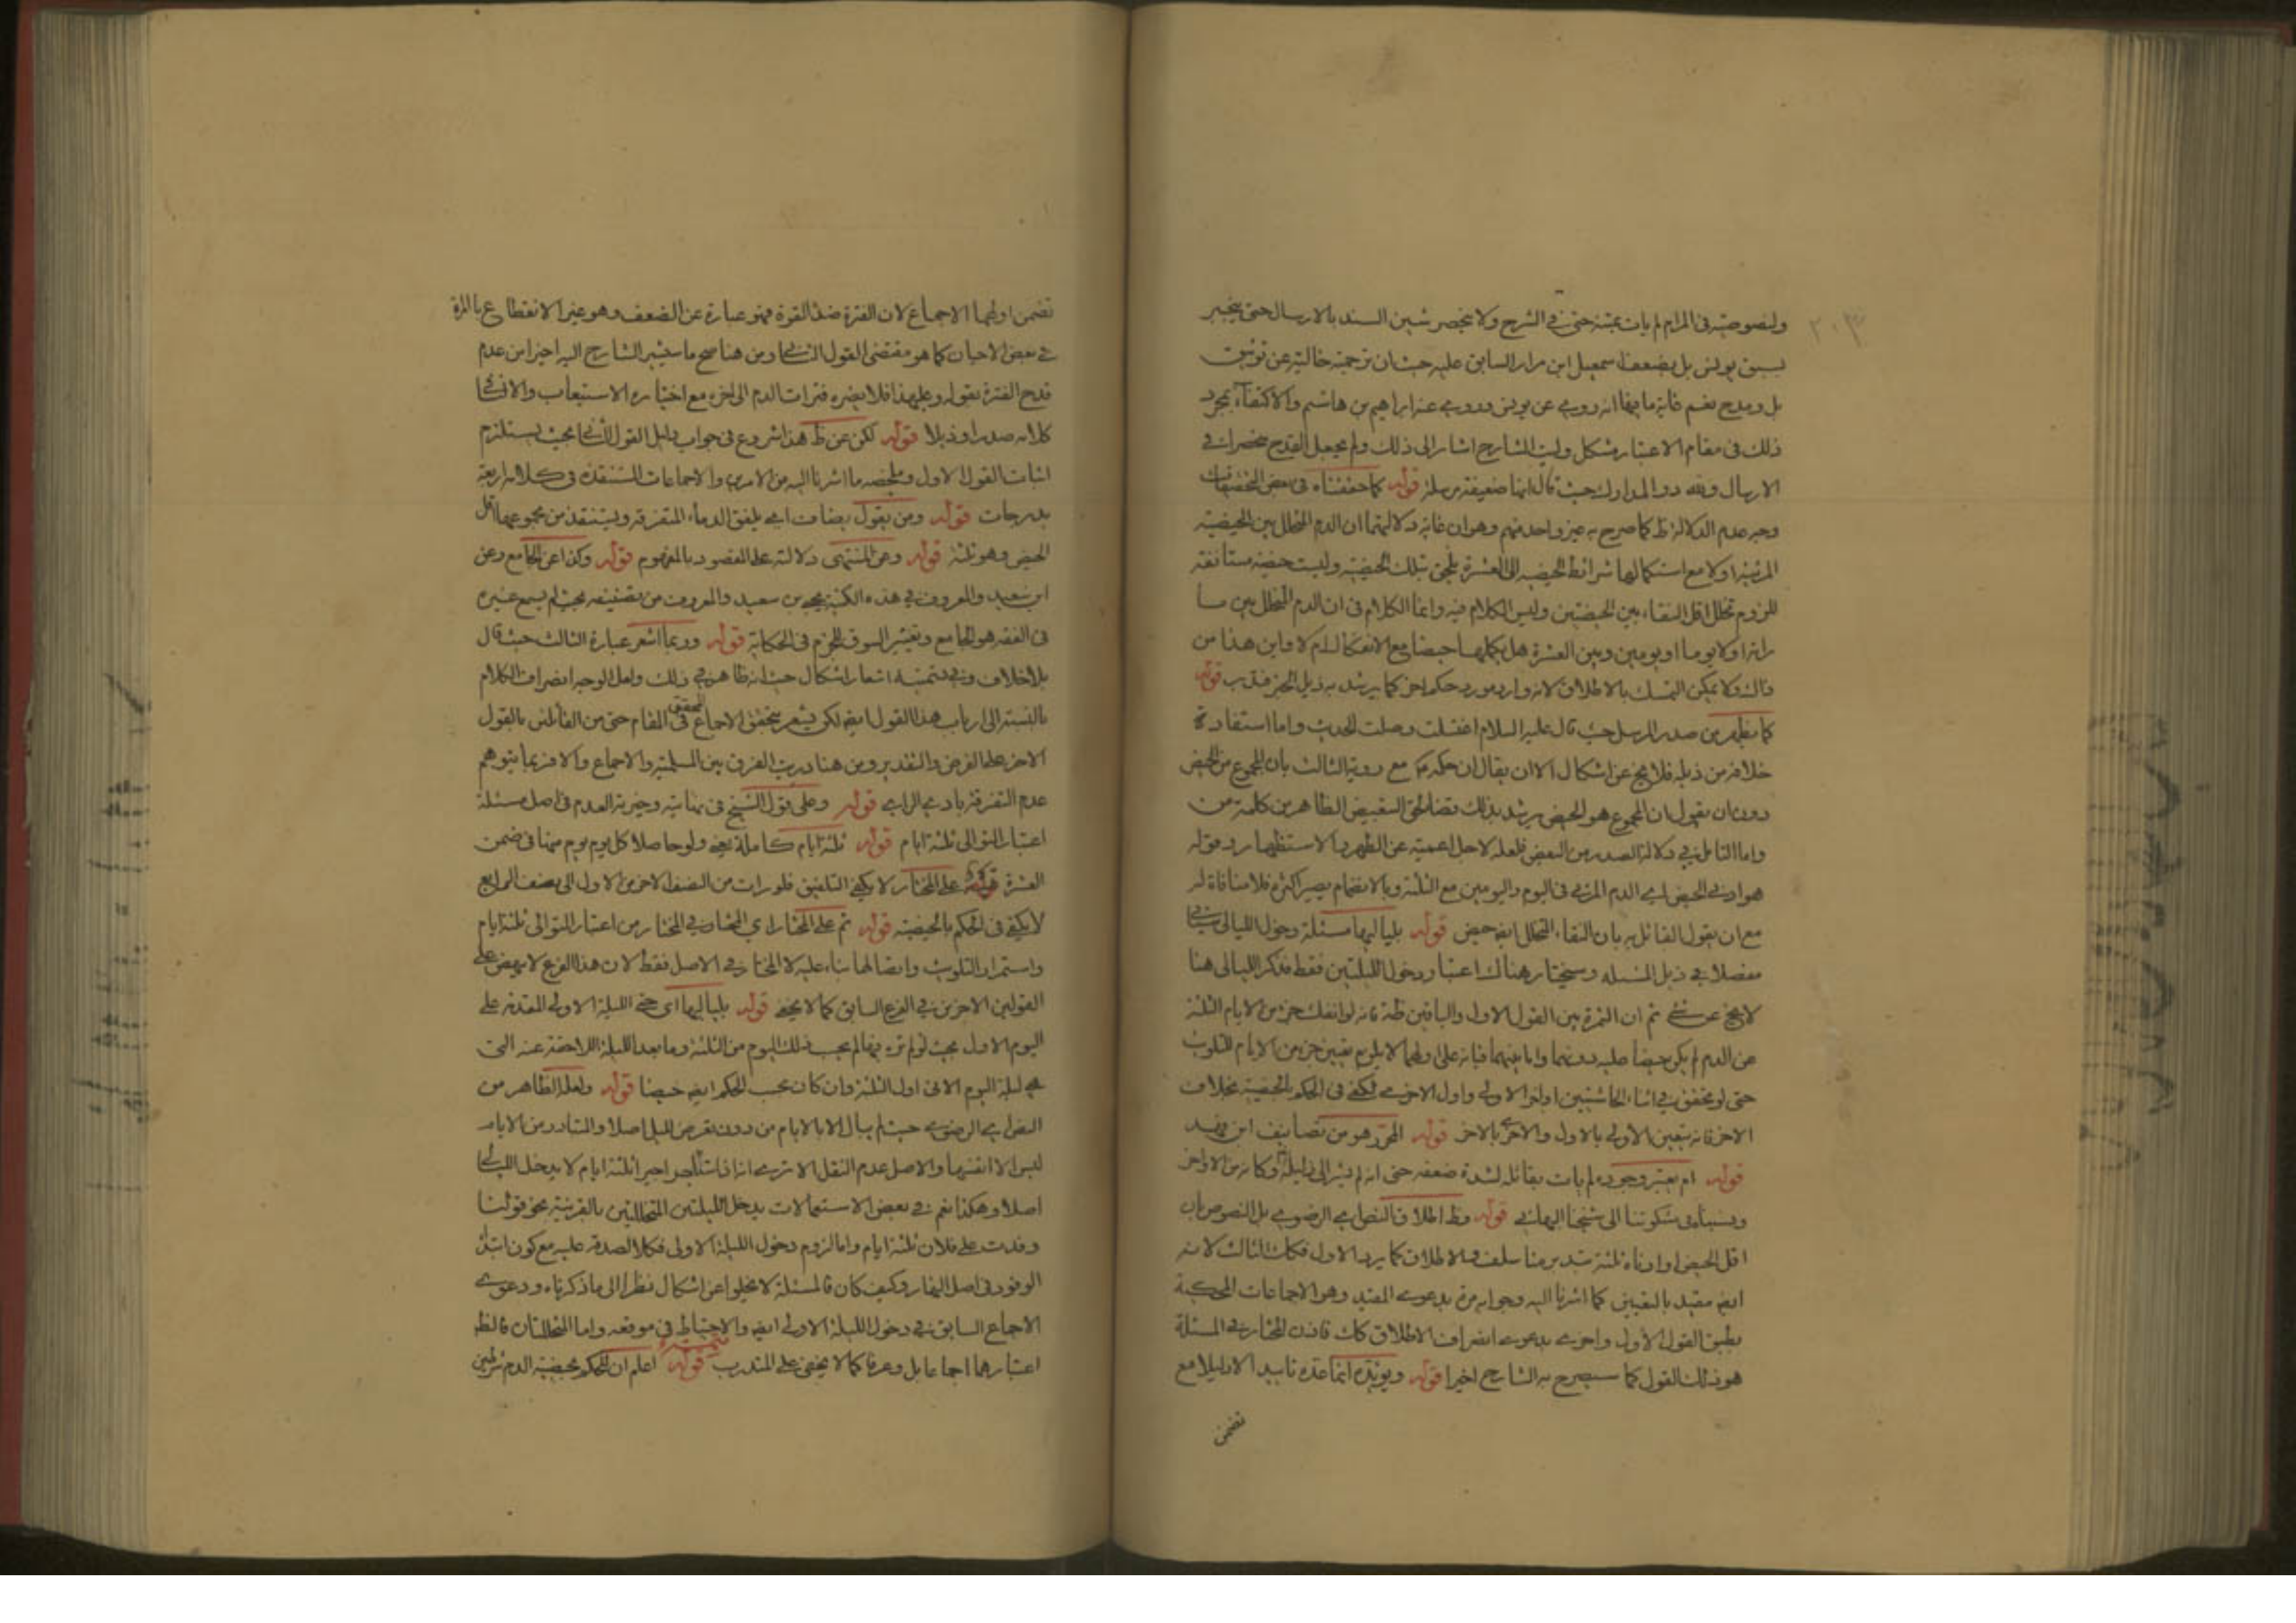 ولنصوصيته في المرام لم يات بمتنه حتى في الشرح ولا ينحصر شين السند بالارسال حتى ينجبر
بسبق يونس بل بضعف اسمعيل ابن مرار السابق عليه حيث ان ترجمته خالية عن توثيق
بل ومدح نعم غاية ما فيها انه روى عن يونس وروى عنه ابراهيم بن هاشم والاكتفاء بمجرد
ذلك في مقام الاعتبار مشكل وليت الشارح اشار الى ذلك ولم يجعل القدح منحصرا في
الارسال وفقه ذو المدارك حيث قال انها ضعيفة مرسلة قوله كما حققناه في بعض التحقيقات
وجه عدم الدلالة ظ كما صرح به غير واحد منهم وهو ان غاية دلالتهما ان الدم المتخلل بين الحيضية
المرئية اولا مع استكمالها شرائط الحيضية الى العشرة يلحق بتلك الحيضية وليست حيضة مستأنفة
للزوم تخلل اقل النقاء بين الحيضتين وليس الكلام فيه وانما الكلام في ان الدم المتخلل بين ما
راته اولا يوما او يومين وبين العشرة هل يكملها حيضا مع الانفكاك ام لا واين هذا من
ذاك ولا يمكن التمسك بالاطلاق لانه وارد مورد حكم اخر كما يرشد به ذيل الخبر فتدبر قوله
كما يظهر من صدر المرسل حيث قال عليه السلام اغتسلت وصلت الحديث واما استفادة
خلافه من ذيله فلا يخ عن اشكال الا ان يقال ان حكمه ع مع روية الثالث بان المجموع من الحيض
دون ان يقول ان المجموع هو الحيض يرشد بذلك لحق التبعيض الظاهر من كلمة من
واما التامل في دلالة الصدر من البعض فلعله لاجل اعميته عن الطهر والاستظهار وقوله
هو ادنى الحيض اى الدم المرئي في اليوم واليومين مع الثلثة وبالانضمام يصير اكثر فلا منافاة له
مع ان يقول القائل به بان النقاء المتخلل ايضه حيض قوله بلياليها مسئلة دخول الليالي سياتي
مفصلا في ذيل المسئلة وسيختار هناك اعتبار دخول الليلتين فقط فذكر الليالي هنا
لا يخ عن شئ ثم ان الثمرة بين القول الاول والباقين ظة فانه لو انفك جزء من الايام الثلثة
عن الدم لم يكن حيضا عليه دونهما واما بينهما فبانه على اولهما لا يلزم تعيين جزء من الايام للتلوث
حتى لو تحقق في اثناء الحاشيتين او اخر الاولى واول الاخرى لكفى في الحكم بالحيضية بخلاف
الاخر فانه يتعين الاولى بالاول والاخرى بالاخر قوله المحرر هو من تصانيف ابن فهد
قوله ام يعتبر وجوده لم يات بقائله لشدة ضعفه حتى انه لم يشر الى دليله وكانه من الاواخر
وينسب في شكوتنا الى شيخنا البهائي قوله وظ اطلاق النص اى الرضوي بل النصوص بان
اقل الحيض او ادناه ثلثة تدبر منا سلف والاطلاق كما يرد الاول فكك الثالث لانه
ايضه مقيد بالتعيين كما اشرنا اليه وجوابه مرة بدعوى المقيد وهو الاجماعات المحكية
بطبق القول الاول واخرى بدعوى انصراف الاطلاق كك فاذن المختار في المسئلة
هو ذلك القول كما سيصرح به الشارح اخيرا قوله ويؤيده انما عده تاييدا لا دليلا مع
تضمن
تضمن اولهما الاجماع لان الفترة ضد القوة فهو عبارة عن الضعف وهو غير الانقطاع بالمرة
في بعض الاحيان كما هو مقتضى القول الثاني ومن هنا صح ما سيشير الشارح اليه اخيرا من عدم
قدح الفترة بقوله وعليهذا فلا يضره فترات الدم الى اخره مع اختياره الاستيعاب والا تنافى
كلامه صدرا وذيلا قوله لكن عن ظ هذا شروع في جواب دليل القول الثاني بحيث يستلزم
اثبات القول الاول وملخصه ما اشرنا اليه من الامرين والاجماعات المستنقذة في كلامه اربعة
بدرجات قوله ومن يقول بضاف اى يلفق الدماء المتفرقة ويستنقذ من مجموعها اقل
الحيض وهو ثلثة قوله وعن المنتهى دلالته على المقصود بالمفهوم قوله وكذا عن الجامع وعن
ابن سعيد والمعروف في هذه الكنية يحيى بن سعيد والمعروف من تصنيفه بحيث لم يسمع غيره
في الفقه هو الجامع وتغيير السوق للجزم في الحكاية قوله وربما اشعر عبارة الثالث حيث قال
بلا خلاف وفي دتمته اشعار اشكال حيث انه ظاهر في ذلك ولعل الوجه انصراف الكلام
بالنسبة الى ارباب هذا القول ايضه لكن يشعر بتحقق الاجماع المحقق في المقام حتى من القائلين بالقول
الاخر على الفرض والتقدير ومن هنا دريت الفرق بين المسلمية والاجماع والا فربما يتوهم
عدم التفرقة بادى الراى قوله وعلى قول الشيخ في نهايته وخيرية العدم في اصل مسئلة
اعتبار التوالي ثلثة ايام قوله ثلثة ايام كاملة يعنى ولو حاصلا كل يوم يوم منها في ضمن
العشرة قوله على المختار لا يكفي التلفيق فلو رات من النصف الاخر من الاول الى نصف الرابع
لا يكفي في الحكم بالحيضية قوله ثم على المختار اي المختار في المختار من اعتبار التوالي ثلثة ايام
واستمرار التلوث واتصالها بناء عليه لا المختار في الاصل فقط لان هذا الفرع لا ينهض على
القولين الاخرين في الفرع السابق كما لا يخفى قوله بلياليها اى حتى الليلة الاولى المقدمة على
اليوم الاول بحيث لو لم تره فيها لم يحسب ذلك اليوم من الثلثة وما بعد الليلة اللاحقة عنه التي
هي ليلة اليوم الاتى اول الثلثة وان كان بحسب الحكم ايضه حيضا قوله ولعله الظاهر من
النص اى الرضوي حيث لم يبال الا بالايام من دون تعرض لليل اصلا والمتبادر من الايام
ليس الا انفسها والاصل عدم النقل الا ترى انه اذا استاجر اجيرا ثلثة ايام لا يدخل الليالي
اصلا وهكذا نعم في بعض الاستعمالات يدخل الليلتين المتخللتين بالقرينة نحو قولنا
وفدت على فلان ثلثة ايام واما لزوم دخول الليلة الاولى فكلا لصدقه عليه مع كون ابتداء
الوفود في اصل النهار وكيف كان فالمسئلة لا تخلوا عن اشكال نظرا الى ما ذكرناه ودعوى
الاجماع السابق في دخول الليلة الاولى ايضه والاحتياط في موقعه واما المتخللتان فالظ
اعتبارهما اجماعا بل وعرفا كما لا يخفى على المتدرب قوله اعلم ان للحكم بحيضية الدم شرطين